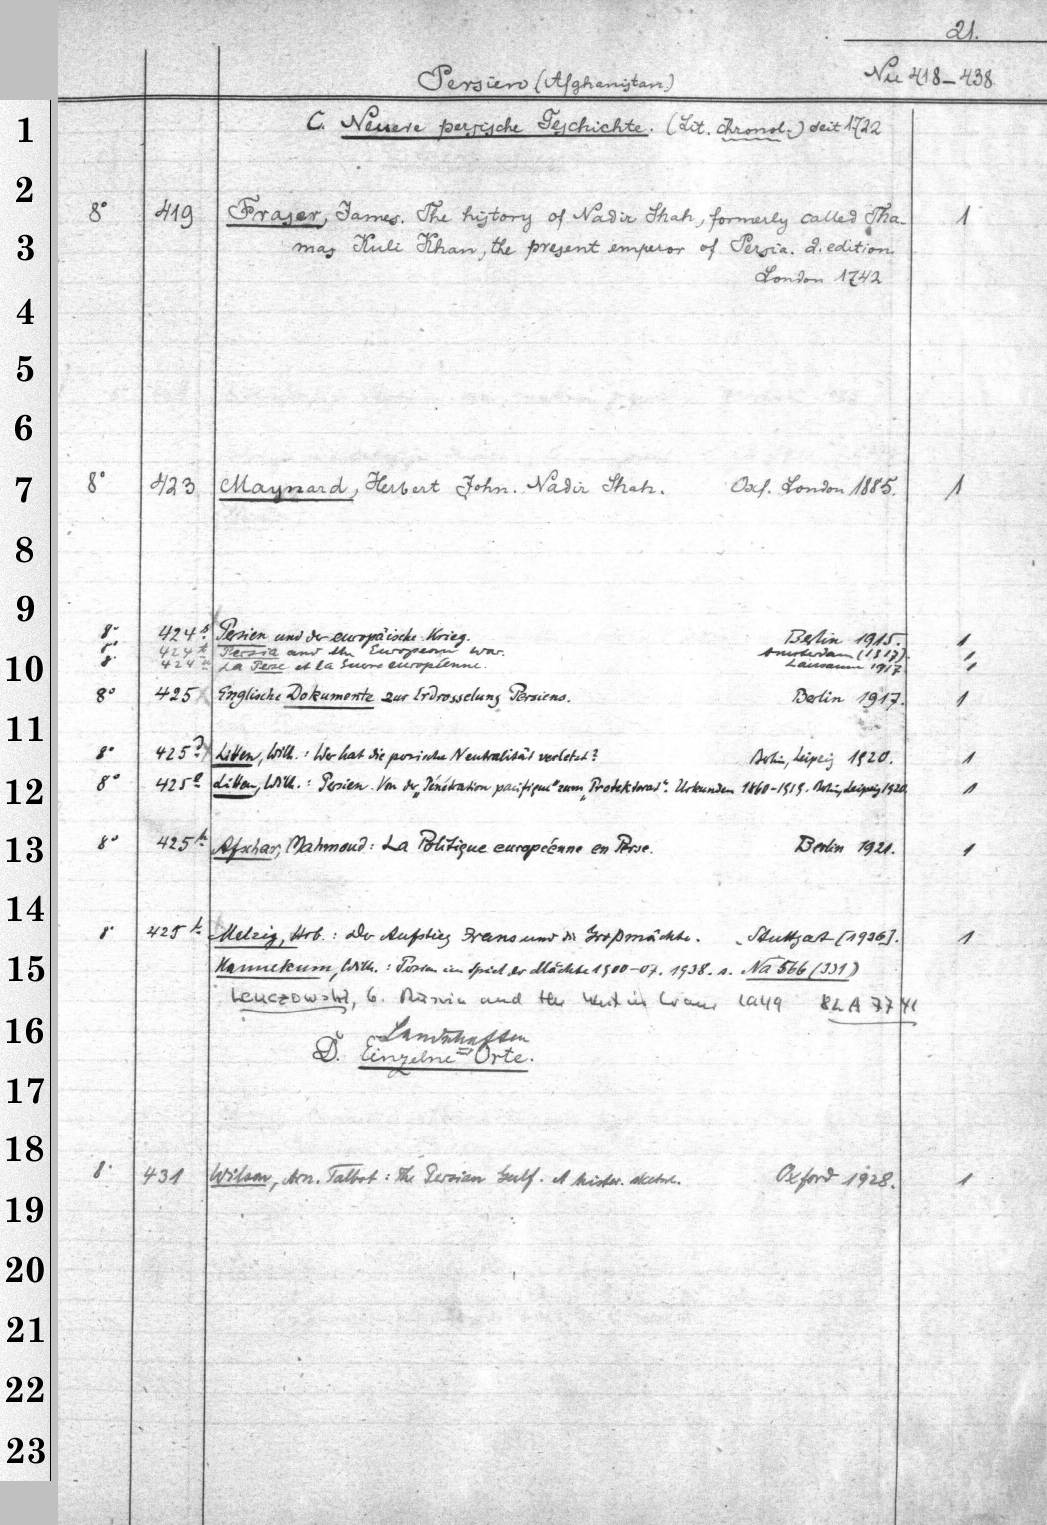 21.
Persien (Afghanistan)
Nu 418–438
1
C. Neuere persische Geschichte. (Lit. chronol.) seit 1722
2
8° 419 Fraser, James. The history of Nadir Shah, formerly called Tha- 1
3
mas Kuli Khan, the present emperor of Persia. 2. edition.
London 1742
4
5
6
7
8° 423 Maynard, Herbert John. Nadir Shah. Oxf. London 1885. 1
8
9
8° 424 Persien und der europäische Krieg. Berlin 1915. 1
8° 424 Persia and the European war. Amsterdam (1917). 1
10
8° 424 La Perse et la Guerre européenne. Lausanne 1917 1
8° 425 Englische Dokumente zur Erdrosselung Persiens. Berlin 1917. 1
11
8° 425 Litten, Wilh.: Wer hat die persische Neutralität verletzt? Berlin, Leipzig 1920. 1
12
8° 425e Litten, Wilh.: Persien. Von der „Pénétration pacifique" zum „Protektorat". Urkunden 1860–1919. Berlin, Leipzig 1920. 1
13
8° 425h Afschar, Mahmoud: La Politique européenne en Perse. Berlin 1921. 1
14
8° 425k Melzig, Herb.: Der Aufstieg Irans und die Großmächte. Stuttgart [1936]. 1
15
Hannekum, Wilh.: Persien im Spiel der Mächte 1900–07. 1938. s. Na 566 (331)
Lenczowski, G. Russia and the West in Iran 1949 8L A 7741
16
Landschaften
D. Einzelne Orte.
17
18
8° 431 Wilson, Arn. Talbot: The Persian Gulf. A histor. sketch. Oxford 1928. 1
19
20
21
22
23